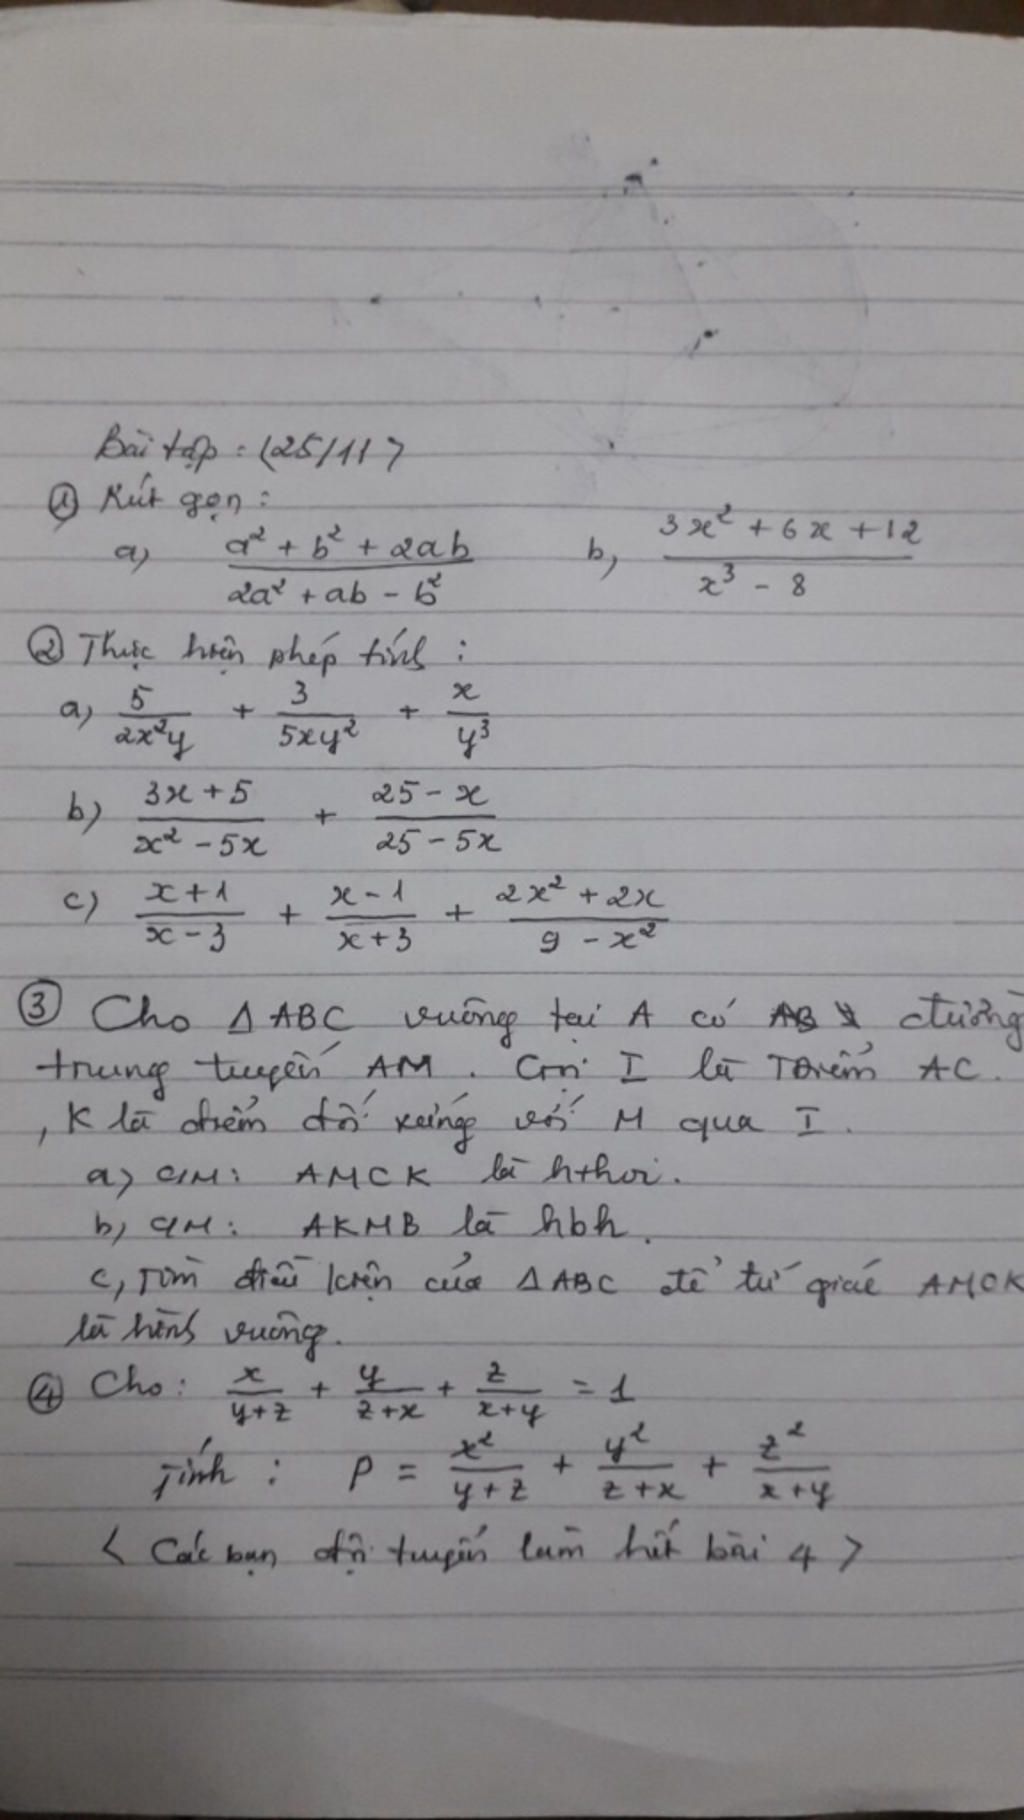 Bài tập : (25/11)
① Rút gọn :
a) (a² + b² + 2ab)/(2a² + ab - b²) b, (3x² + 6x + 12)/(x³ - 8)
② Thực hiện phép tính :
a) 5/(2x²y) + 3/(5xy²) + x/y³
b) (3x + 5)/(x² - 5x) + (25 - x)/(25 - 5x)
c) (x + 1)/(x - 3) + (x - 1)/(x + 3) + (2x² + 2x)/(9 - x²)
③ Cho Δ ABC vuông tại A có đường
trung tuyến AM . Gọi I là TĐiểm AC .
, K là điểm đối xứng với M qua I .
a) CM : AMCK là hthoi .
b, CM : AKMB là hbh .
c, Tìm điều kiện của Δ ABC để tứ giác AMCK
là hình vuông .
④ Cho : x/(y+z) + y/(z+x) + z/(x+y) = 1
Tính : P = x²/(y+z) + y²/(z+x) + z²/(x+y)
< Các bạn đội tuyển làm hết bài 4 >